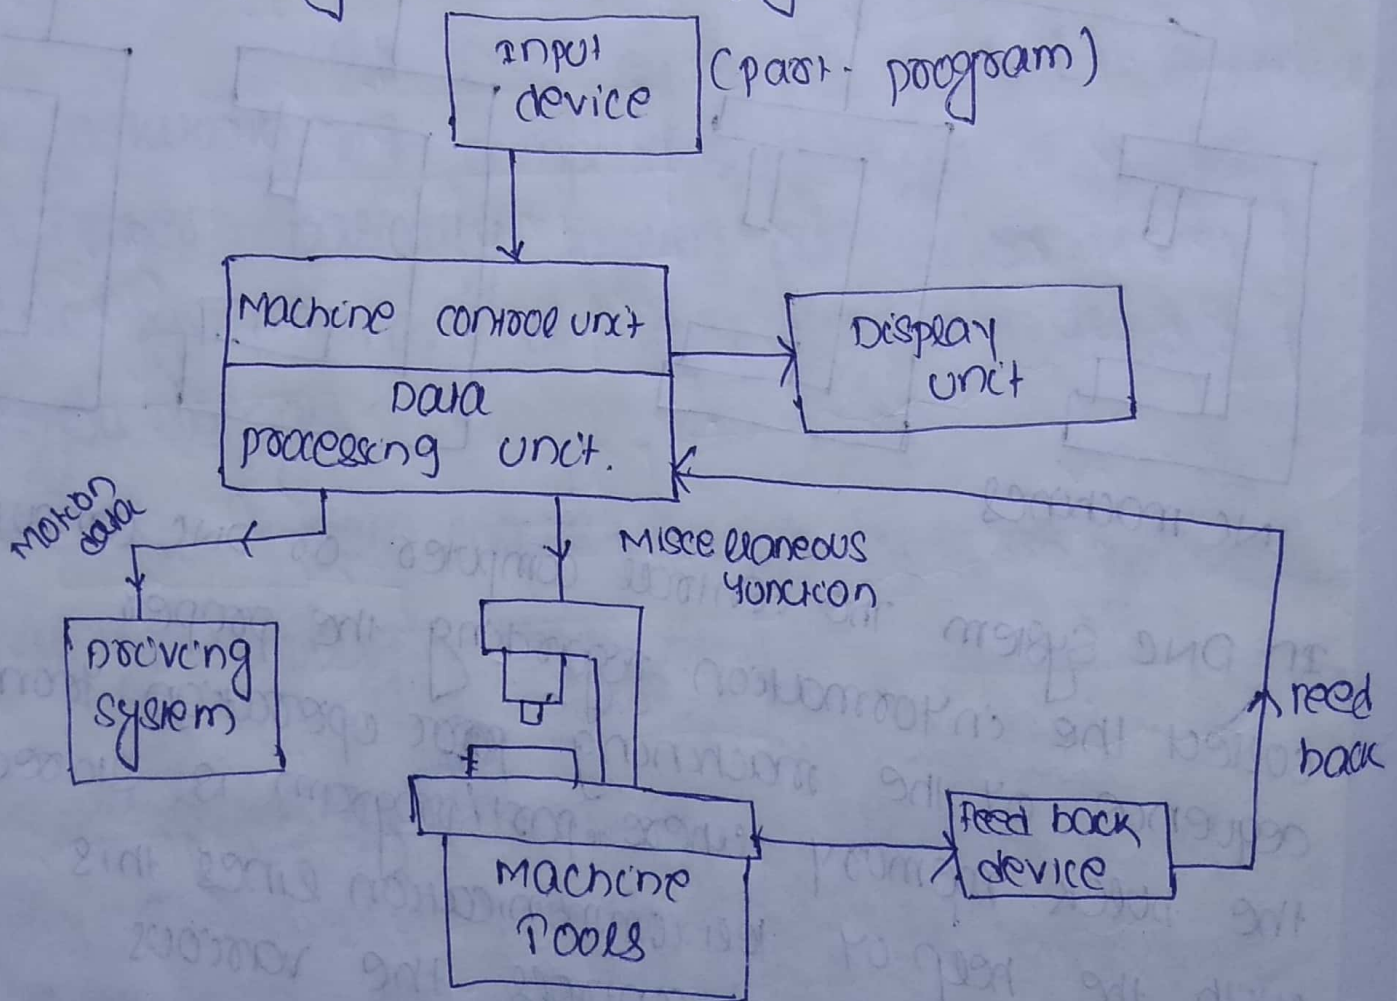 Input
device
(part- program)
Machine controle unit
Data
processing unit.
Display
unit
Motion
data
Miscellaneous
function
Driving
system
Feed
back
Feed back
device
Machine
Tools